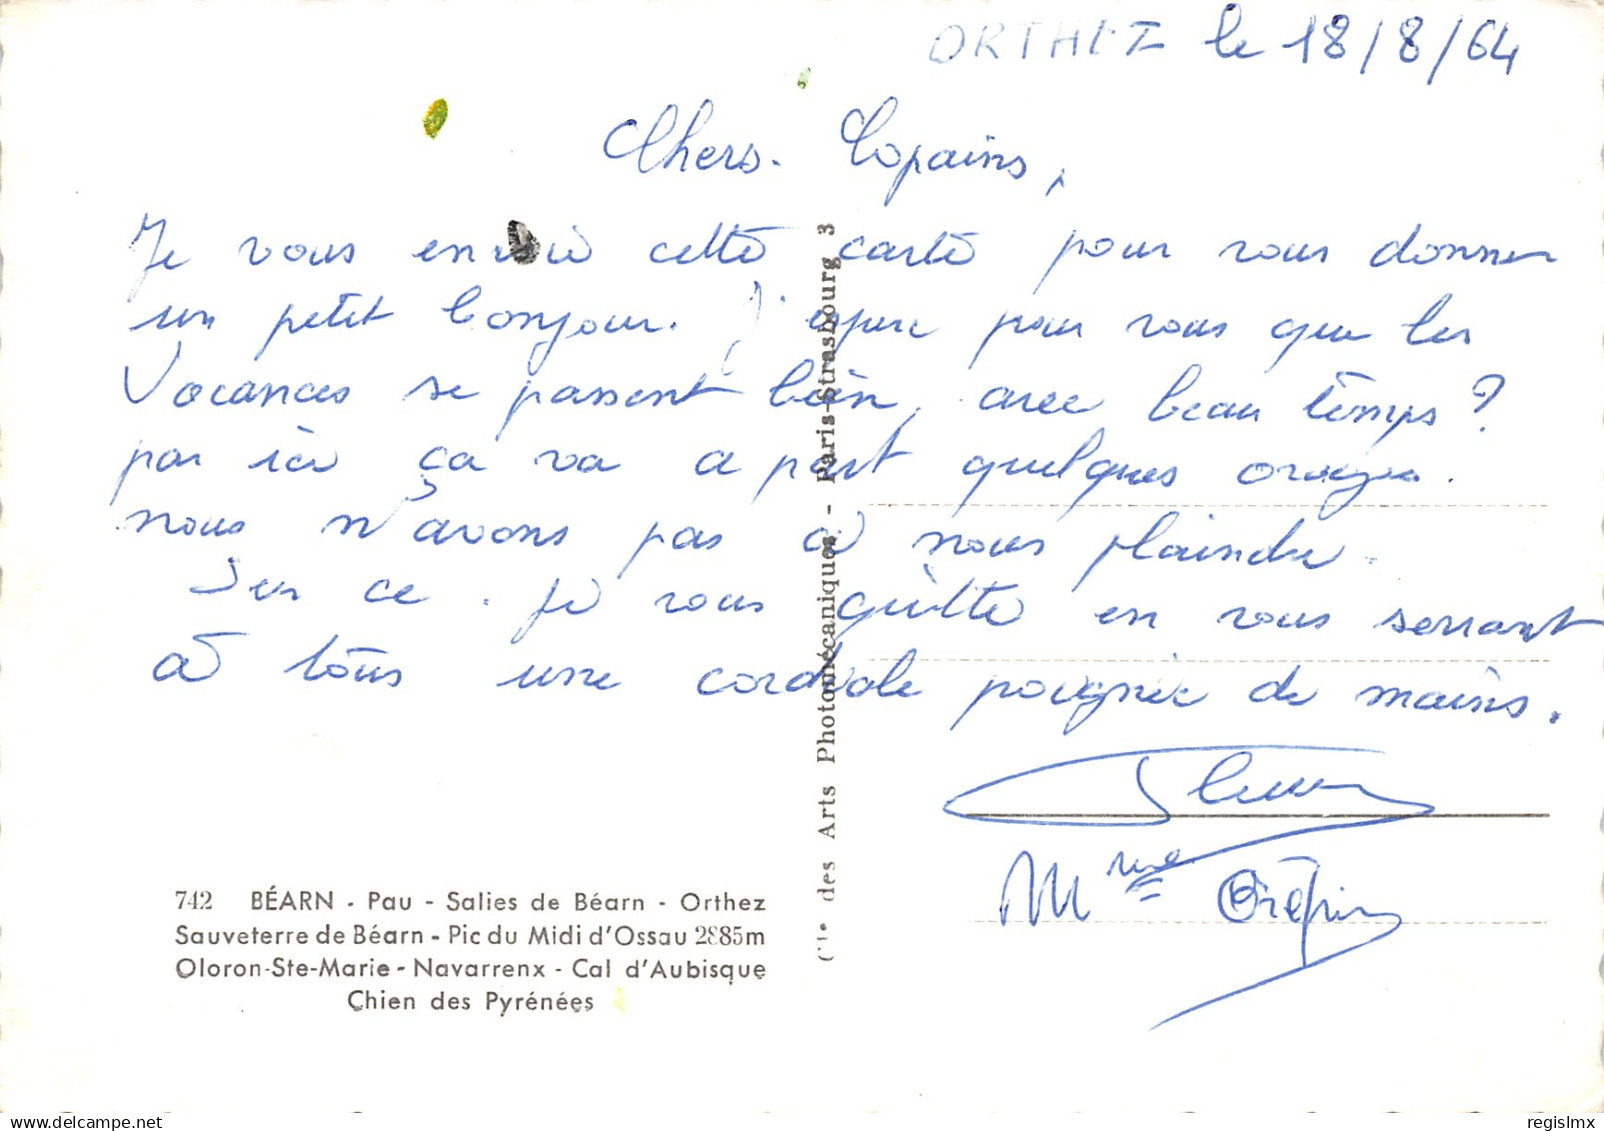 ORTHEZ le 18/8/64
Chers. Copains,
Je vous envoie cette carte pour vous donner
un petit bonjour. J'espere pour vous que les
Vacances se passent bien, avec beau temps ?
par ici ça va a part quelques orages.
nous n'avons pas à nous plaindre.
Sur ce. je vous quitte en vous serrant
à tous une cordiale poignée de mains.
Mme Crépin
742 BÉARN - Pau - Salies de Béarn - Orthez
Sauveterre de Béarn - Pic du Midi d'Ossau 2885m
Oloron-Ste-Marie - Navarrenx - Cal d'Aubisque
Chien des Pyrénées
Cie des Arts Photomécaniques - Paris-Strasbourg 3
regislmx